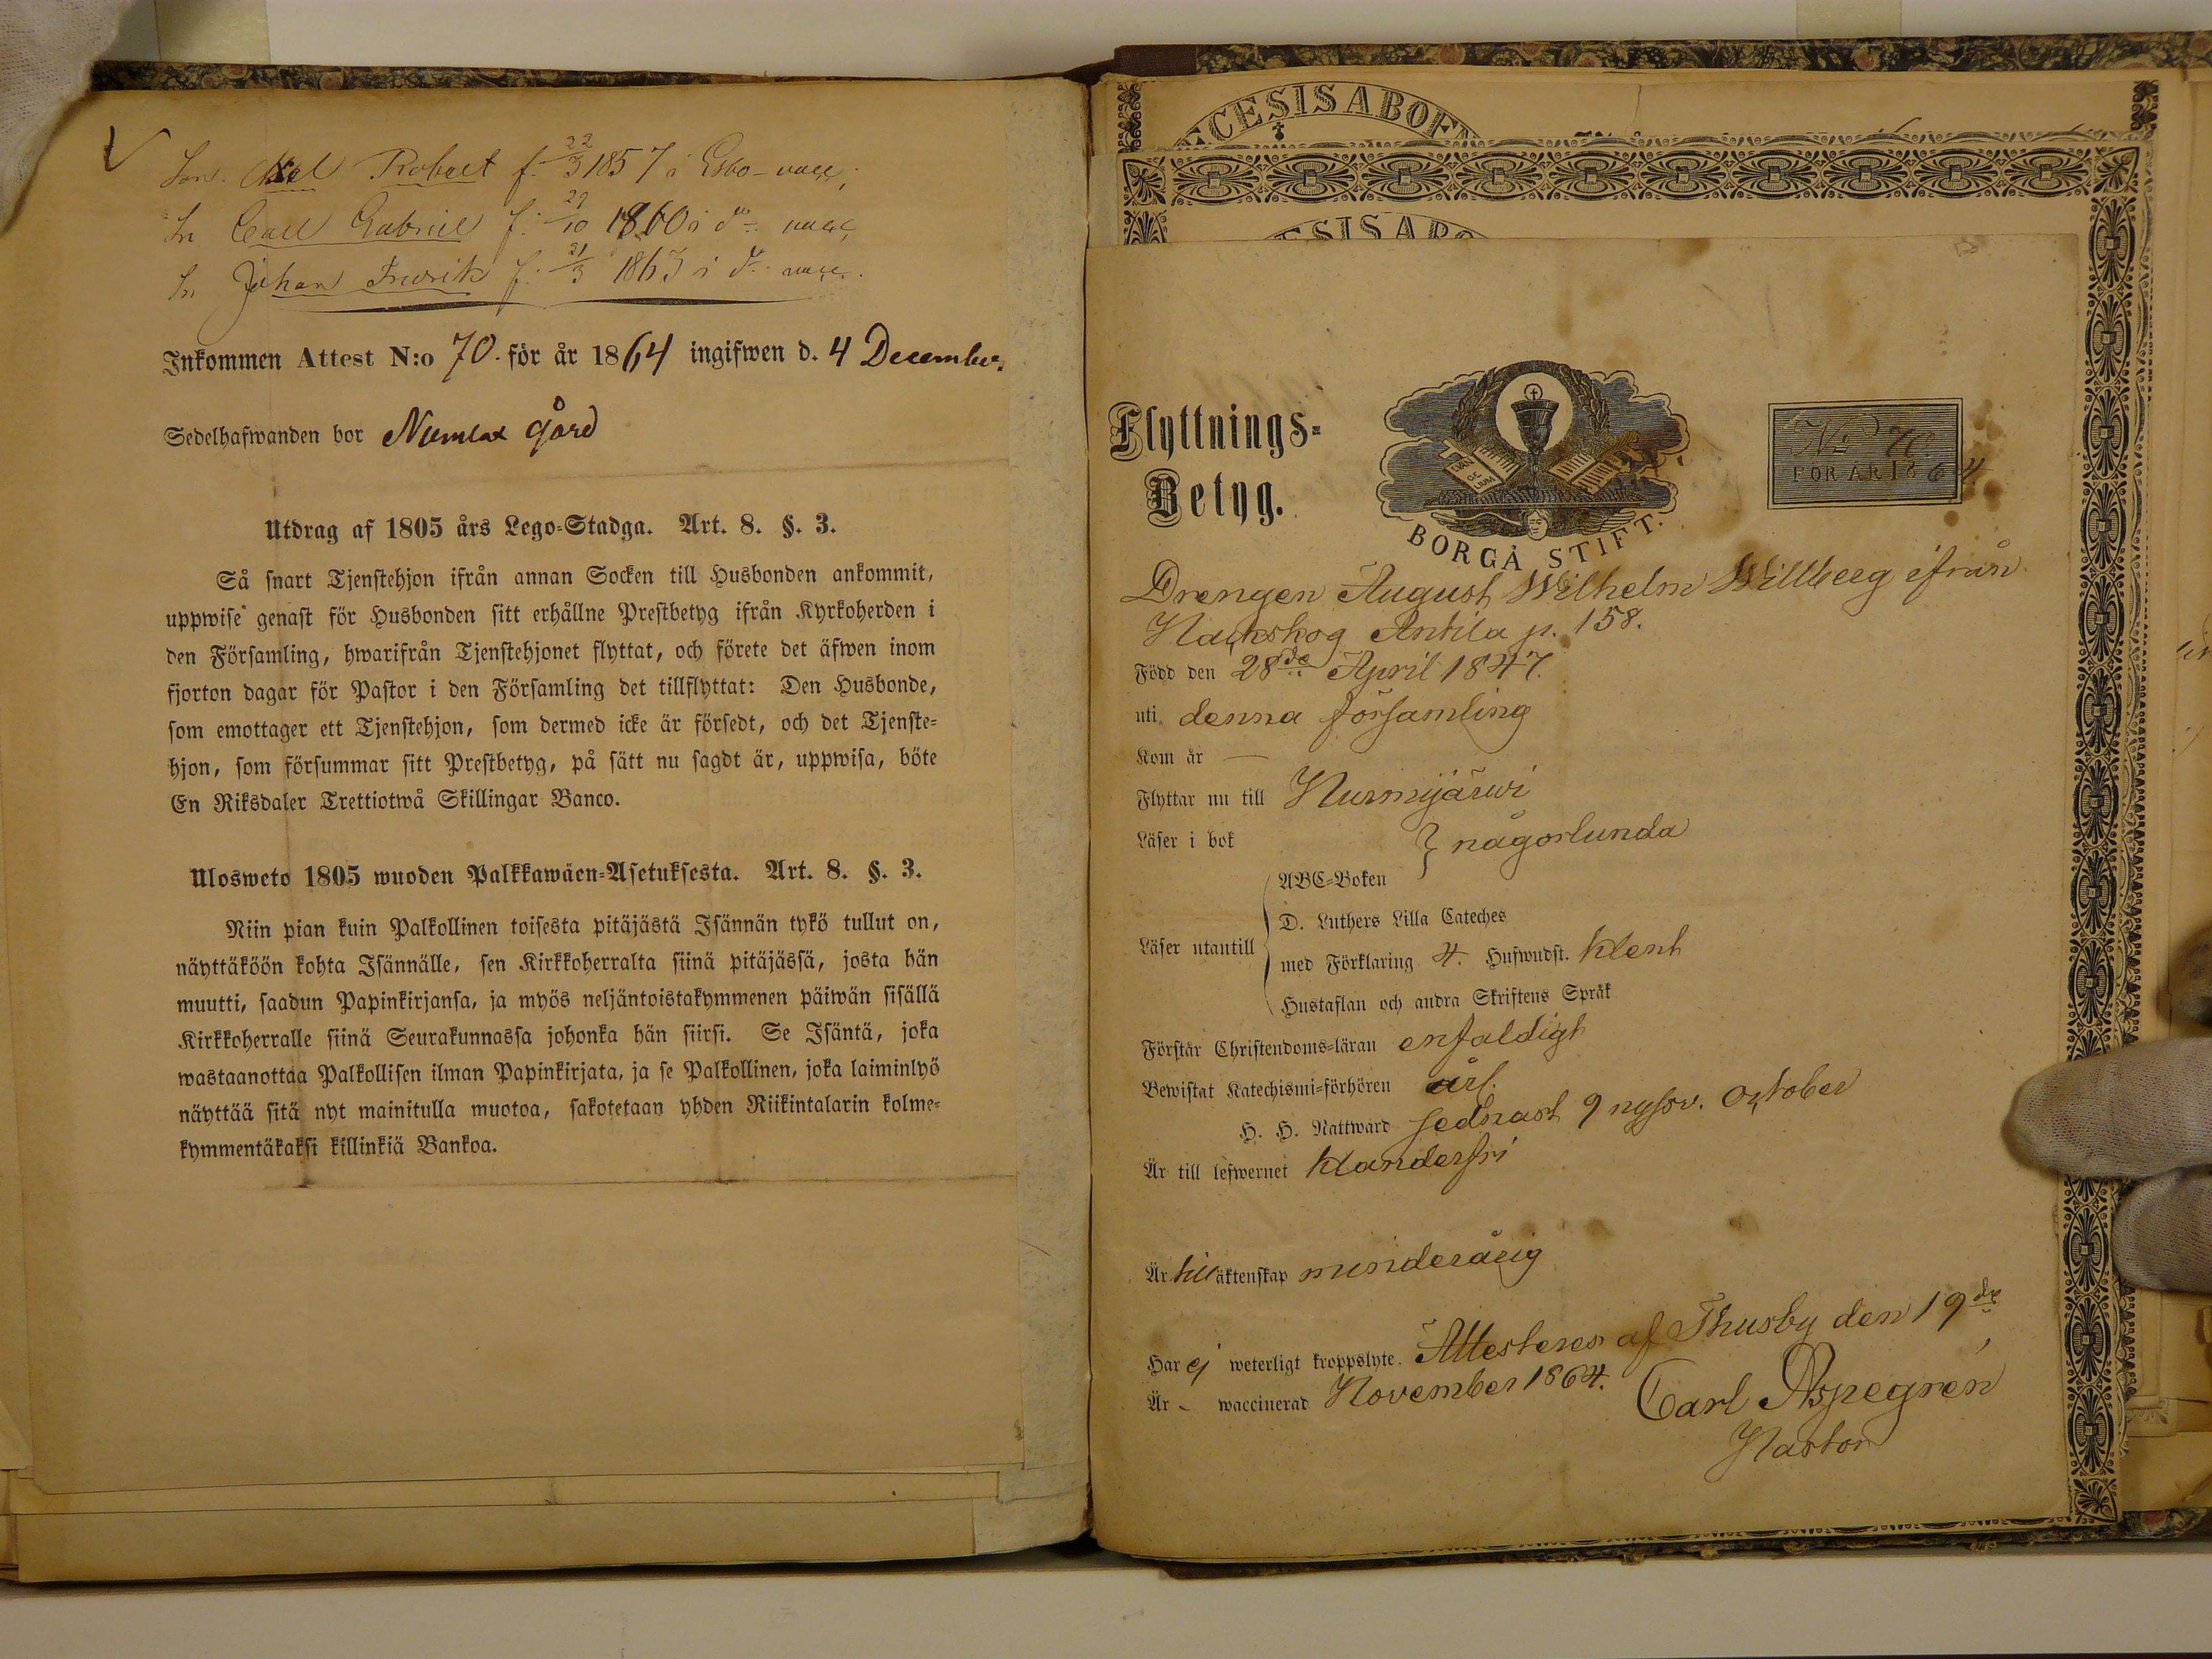 Son. Axel Robert f. 22/3 1857 i Esbo - vacc.
Sn Carl Gabriel f. 29/10 1860 i do vacc.
Sn Johan Fredrik f. 21/3 1863 i do vacc.
Inkommen Attest N:o 70. för år 1864 ingifwen d. 4 December.
Sedelhafwanden bor Numlax gård
Utdrag af 1805 års Lego-Stadga. Art. 8. §. 3.
Så snart Tjenstehjon ifrån annan Socken till Husbonden ankommit,
uppwise genast för Husbonden sitt erhållne Prestbetyg ifrån Kyrkoherden i
den Församling, hwarifrån Tjenstehjonet flyttat, och förete det äfwen inom
fjorton dagar för Pastor i den Församling det tillflyttat: Den Husbonde,
som emottager ett Tjenstehjon, som dermed icke är försedt, och det Tjenste-
hjon, som försummar sitt Prestbetyg, på sätt nu sagdt är, uppwisa, böte
En Riksdaler Trettiotwå Skillingar Banco.
Ulosweto 1805 wuoden Palkkawäen-Asetuksesta. Art. 8. §. 3.
Niin pian kuin Palkollinen toisesta pitäjästä Isännän tykö tullut on,
näyttäköön kohta Isännälle, sen Kirkkoherralta siinä pitäjässä, josta hän
muutti, saadun Papinkirjansa, ja myös neljäntoistakymmenen päiwän sisällä
Kirkkoherralle siinä Seurakunnassa johonka hän siirsi. Se Isäntä, joka
wastaanottaa Palkollisen ilman Papinkirjata, ja se Palkollinen, joka laiminlyö
näyttää sitä nyt mainitulla muotoa, sakotetaan yhden Riikintalarin kolme-
kymmentäkaksi killinkiä Bankoa.
CESIS ABOEN
ESIS ABO
Flyttnings-
Betyg.
EVAN
GE
LIUM
BORGÅ STIFT.
No 70.
FÖR ÅR 1864
Drengen August Wilhelm Willberg ifrån
Nackskog Antila p. 158.
Född den 28de April 1847.
uti denna församling
Kom år —
Flyttar nu till Nurmijärwi
Läser i bok } någorlunda
ABC-Boken
D. Luthers Lilla Cateches
Läser utantill
med Förklaring 4. Hufwudst. klent
Hustaflan och andra Skriftens Språk
Förstår Christendoms-läran enfaldigt
Bewistat Katechismi-förhören årl.
H. H. Nattward sednast 9 October
Är till lefwernet klanderfri
Är till äktenskap minderårig
Har ej weterligt kroppslyte. Attesteres af Thusby den 19de
Är - waccinerad November 1864.
Carl Aspegren
Pastor